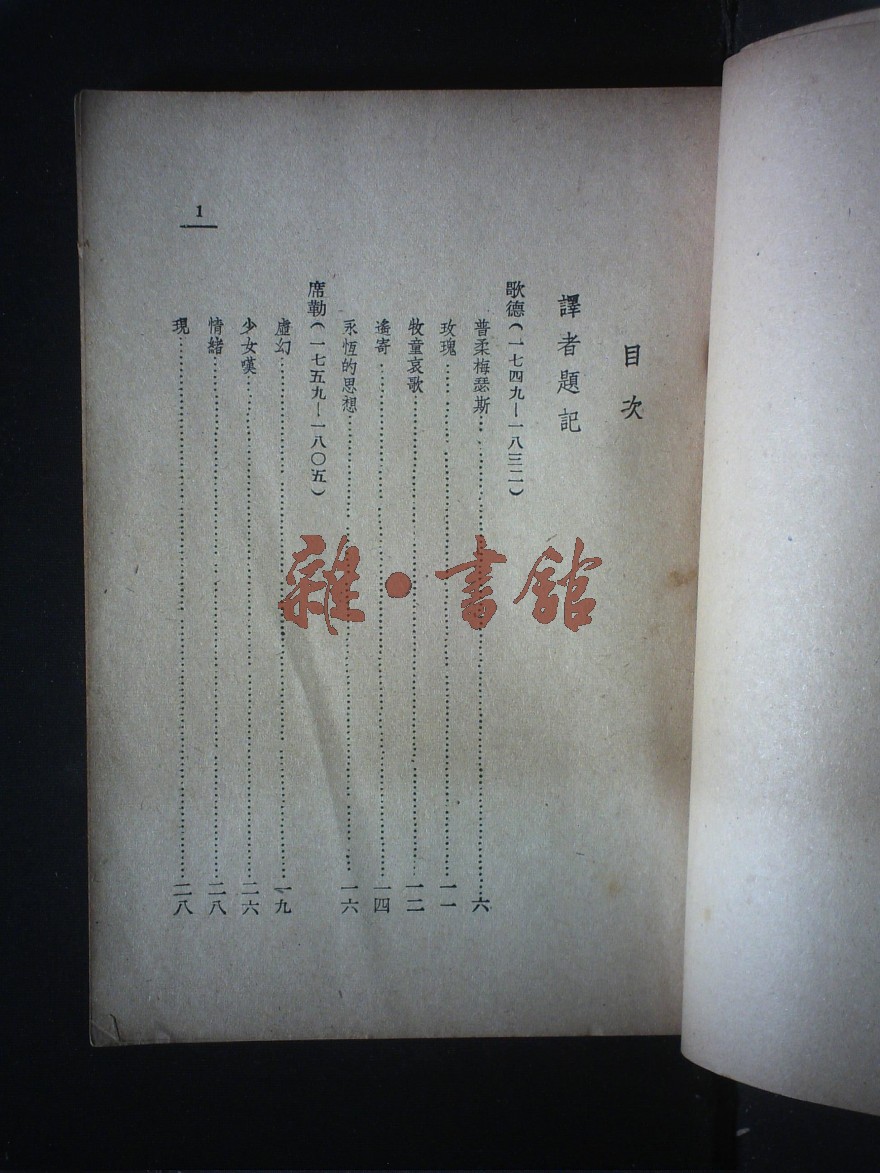 目次
譯者題記
歌德(一七四九—一八三二)
普柔梅瑟斯…六
玫瑰…一一
牧童哀歌…一二
遙寄…一四
永恆的思想…一六
席勒(一七五九—一八〇五)
虛幻…一九
少女嘆…二六
情緒…二八
現…二八
1
雜·書館